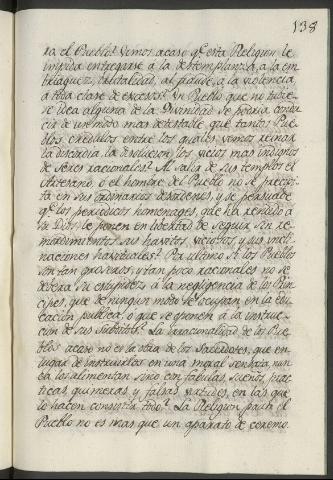 138
ra el Pueblo? Vemos acaso qe. esta Religion le
impida entregarse á la destemplanza, á la em
briaguez, brutalidad, al fraude, á la violencia
á toda clase de excesos? Un Pueblo que no tubie-
se idea alguna de la Divinidad se podria condu
cir de un modo mas detestable que tantos Pue
blos credulos entre los quales vemos reinar
la disolucion, los vicios mas indignos
de seres racionales? Al salir de sus templos el
Artesano, ó el hombre del Pueblo no se precipi-
ta en sus ordinarios desordenes, y se persuade
qe. los periodicos homenages, que ha rendido á
su Dios le ponen en libertad de seguir sin re-
mordimientos sus havitos viciosos y sus incli
naciones havituales? Por ultimo si los Pueblos
son tan groseros, y tan poco racionales no se
debera su estupidez á la negligencia de los Prin
cipes, que de ningun modo se ocupan en la edu
cacion publica, ó que se oponen á la instruc-
cion de sus Subditos? La irracionalidad de los Pue
blos acaso no es la obra de los Sacerdotes, que en
lugar de instruirlos en una moral sensata, nun
ca los alimentan sino con fabulas, sueños, prac
ticas, quimeras, y falsas virtudes, en las que
lo hacen consistir todo? La Religion para el
Pueblo no es mas que un aparato de ceremo.